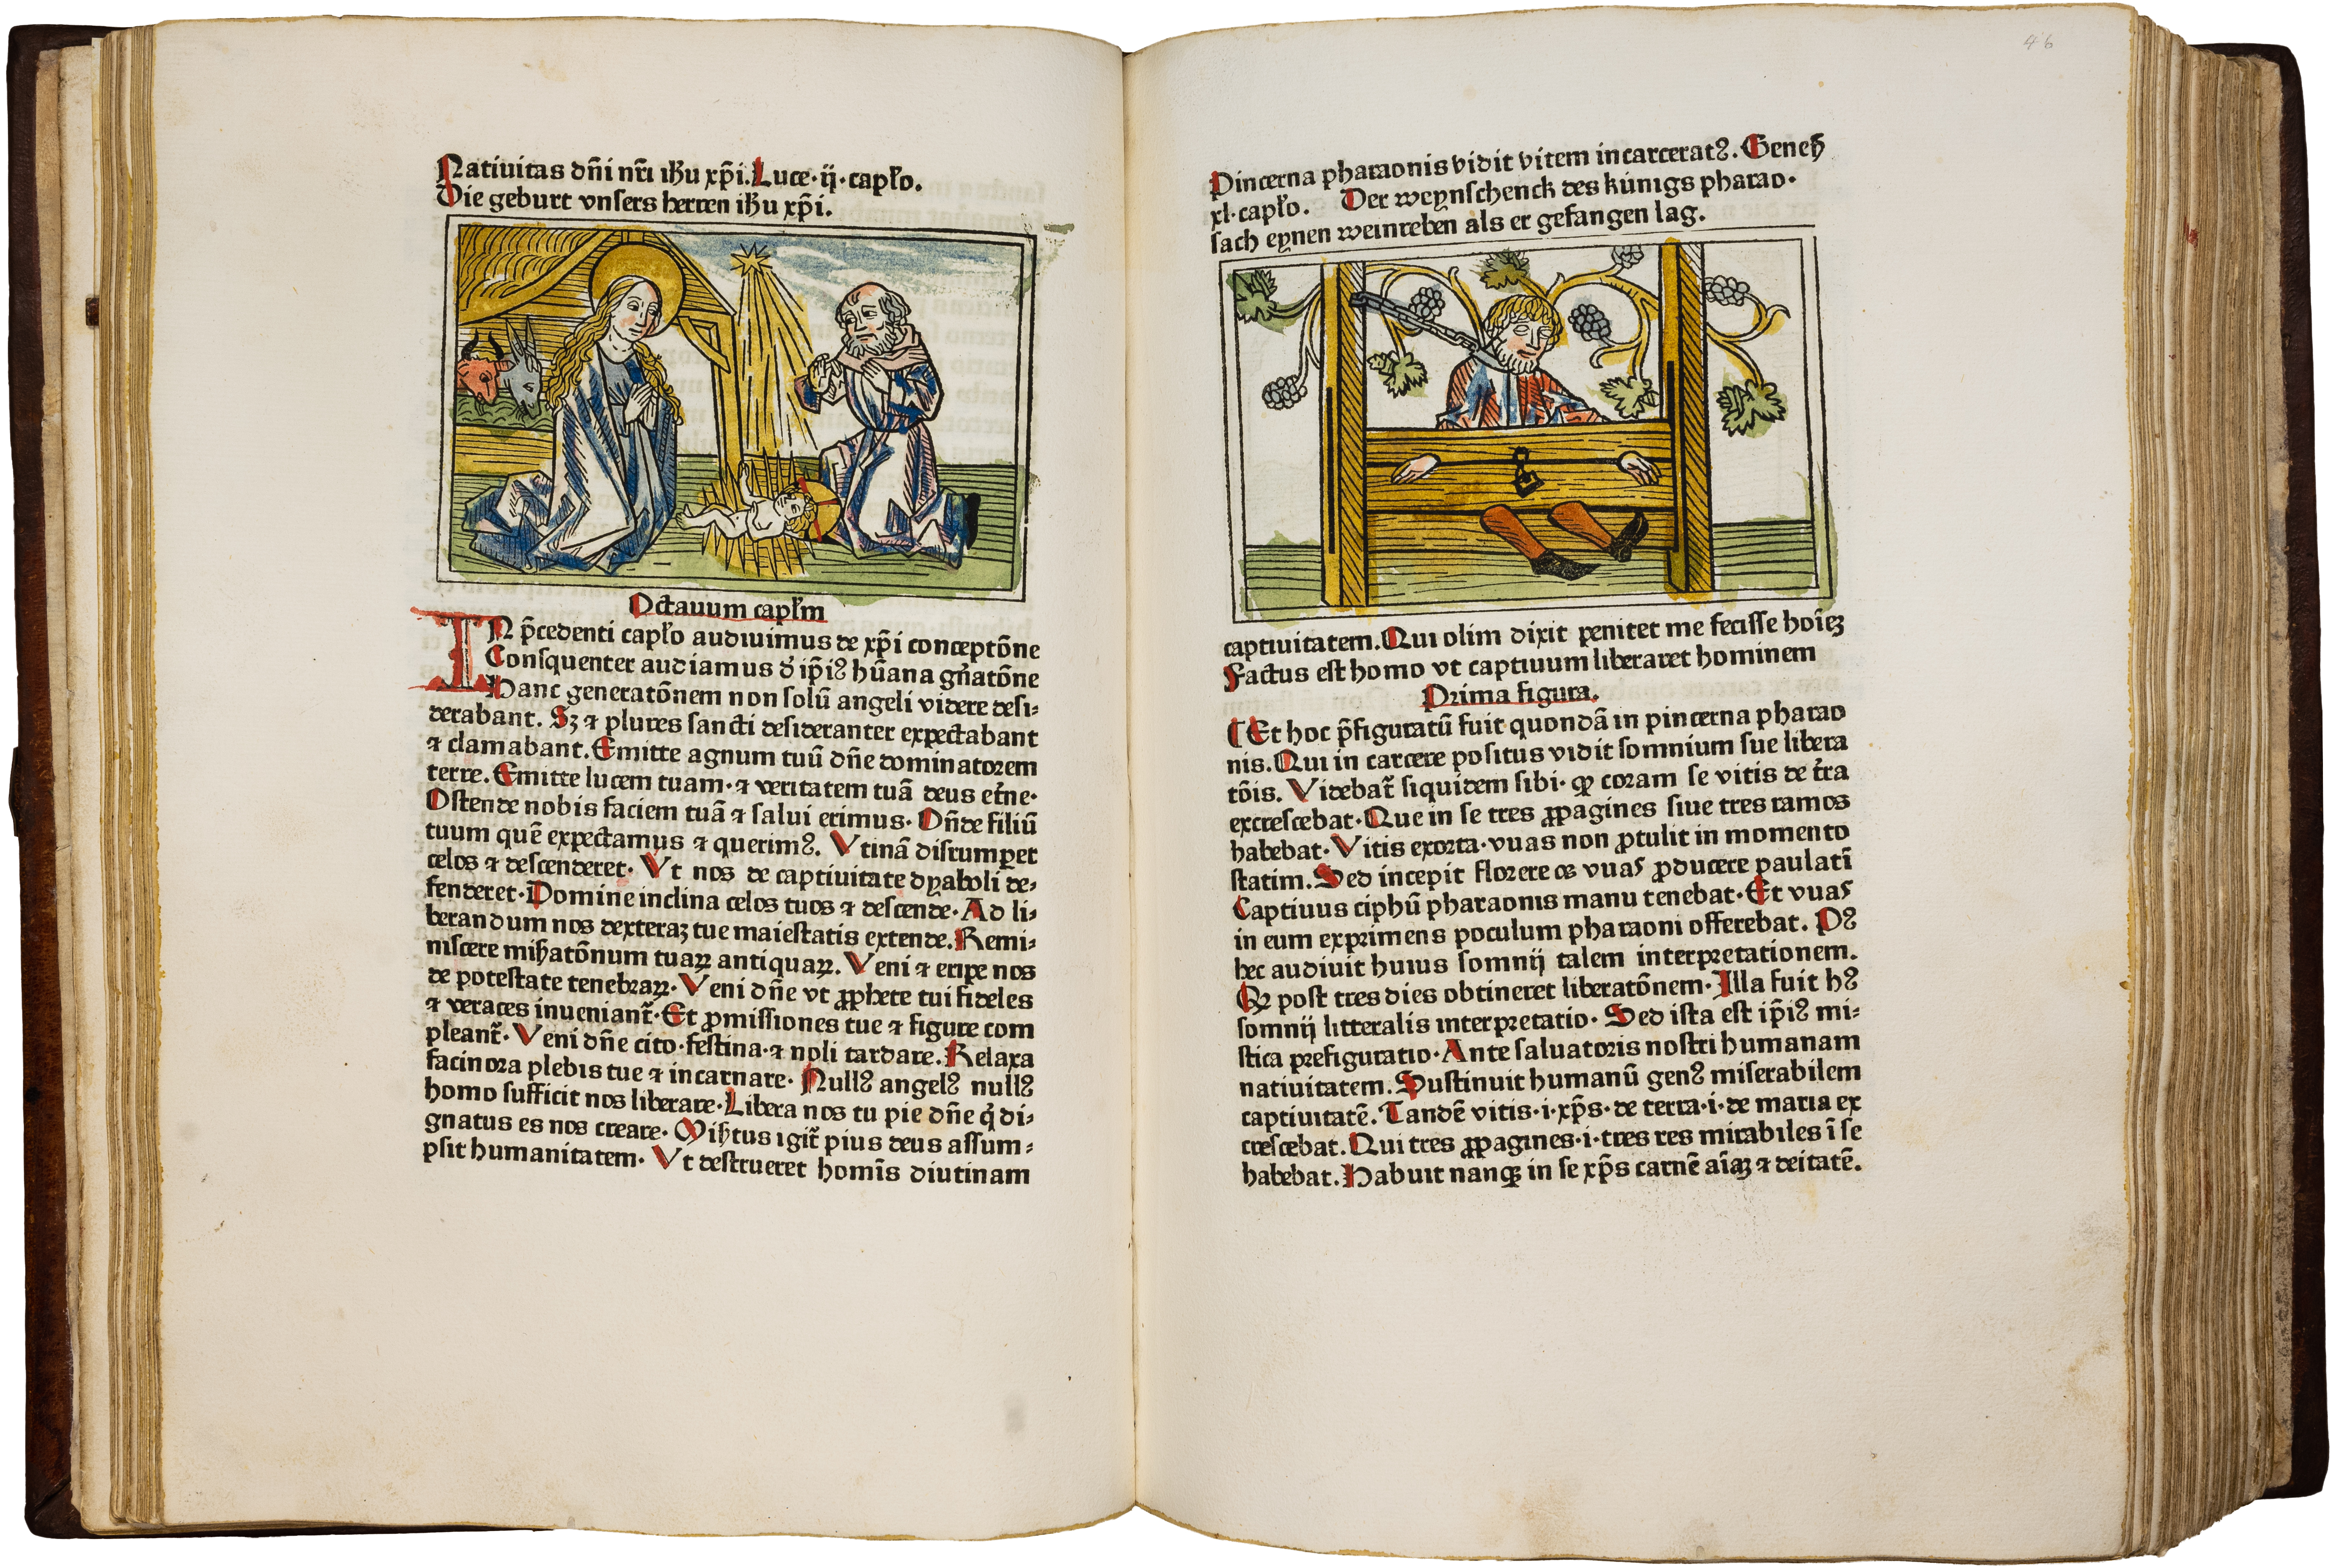 Natiuitas dn̄i nr̄i ih̄u xp̄i. Luce·ij·capl̄o.
Die geburt vnsers herren ih̄u xp̄i.
Octauum capl̄m
IN p̄cedenti capl̄o audiuimus de xp̄i conceptōne
Consquenter audiamus d̓ ip̄iꝰ hūana gn̄atōne
Hanc generatōnem non solū angeli videre desi⸗
derabant. Sꝫ ⁊ plures sancti desideranter expectabant
⁊ clamabant. Emitte agnum tuū dn̄e dominatorem
terre. Emitte lucem tuam·⁊ veritatem tuā deus et̄ne·
Ostende nobis faciem tuā ⁊ salui erimus· On̄de filiū
tuum quē expectamus ⁊ querimꝰ. Vtinā disrumperet
celos ⁊ descenderet· Vt nos de captiuitate dyaboli de⸗
fenderet·Domine inclina celos tuos ⁊ descende·Ad li⸗
berandum nos dexteraꝫ tue maiestatis extende. Remi⸗
niscere mih̄atōnum tuaꝝ antiquaꝝ. Veni ⁊ eripe nos
de potestate tenebraꝝ· Veni dn̄e vt ꝓphete tui fideles
⁊ veraces inueniant̄·Et ꝓmissiones tue ⁊ figure com
pleant̄· Veni dn̄e cito·festina·⁊ noli tardare. Relaxa
facinora plebis tue ⁊ incarnare· Nullꝰ angelꝰ nullꝰ
homo sufficit nos liberare·Libera nos tu pie dn̄e q̇ di⸗
gnatus es nos creare· Mih̄tus igit̄ pius deus assum⸗
psit humanitatem· Vt destrueret homīs diutinam
46
Pincerna pharaonis vidit vitem incarceratꝰ. Geneẜ
xl·capl̄o. Der weynschenck des kúnigs pharao·
sach eynen weinreben als er gefangen lag.
captiuitatem.Qui olim dixit penitet me fecisse hoīeꝫ
Factus est homo vt captiuum liberaret hominem
Prima figura.
⁋Et hoc p̄figuratū fuit quondā in pincerna pharao
nis.Qui in carcere positus vidit somnium sue libera
tōis. Videbat̄ siquidem sibi· ꝙ coram se vitis de t̄ra
excrescebat·Que in se tres ꝓpagines siue tres ramos
habebat·Vitis exorta·vuas non ꝓtulit in momento
statim.Sed incepit florere et vuas ꝓducere paulatī
Captiuus ciphū pharaonis manu tenebat·Et vuas
in eum exprimens poculum pharaoni offerebat. Pꝰ
hec audiuit huius somnij talem interpretationem.
Qꝛ post tres dies obtineret liberatōnem·Illa fuit hꝰ
somnij litteralis interpretatio· Sed ista est ip̄iꝰ mi⸗
stica prefiguratio·Ante saluatoris nostri humanam
natiuitatem. Sustinuit humanū genꝰ miserabilem
captiuitatē. Tandē vitis·i·xp̄s·de terra·i·de maria ex
crescebat.Qui tres ꝓpagines·i·tres res mirabiles ī se
habebat.Habuit nanqꝫ in se xp̄s carnē aīaꝫ ⁊ deitatē.